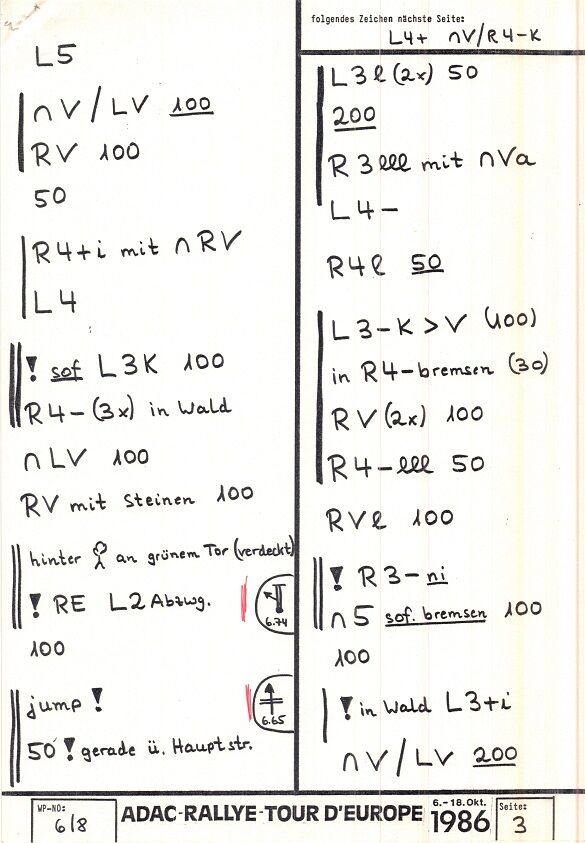 L5
∩V/LV 100
RV 100
50
R4+i mit ∩RV
L4
! sof L3K 100
R4-(3x) in Wald
∩LV 100
RV mit Steinen 100
hinter an grünem Tor (verdeckt)
! RE L2 Abzwg.
6.74
100
jump !
6.65
50 ! gerade ü. Hauptstr.
folgendes Zeichen nächste Seite:
L4+ ∩V/R4-K
L3l(2x) 50
200
R3lll mit ∩Va
L4-
R4l 50
L3-K>V (100)
in R4-bremsen (30)
RV(2x) 100
R4-lll 50
RVl 100
! R3-ni
∩5 sof. bremsen 100
100
! in Wald L3+i
∩V/LV 200
WP-NO:
6/8
ADAC-RALLYE-TOUR D'EUROPE
6.-18.Okt.
1986
Seite:
3